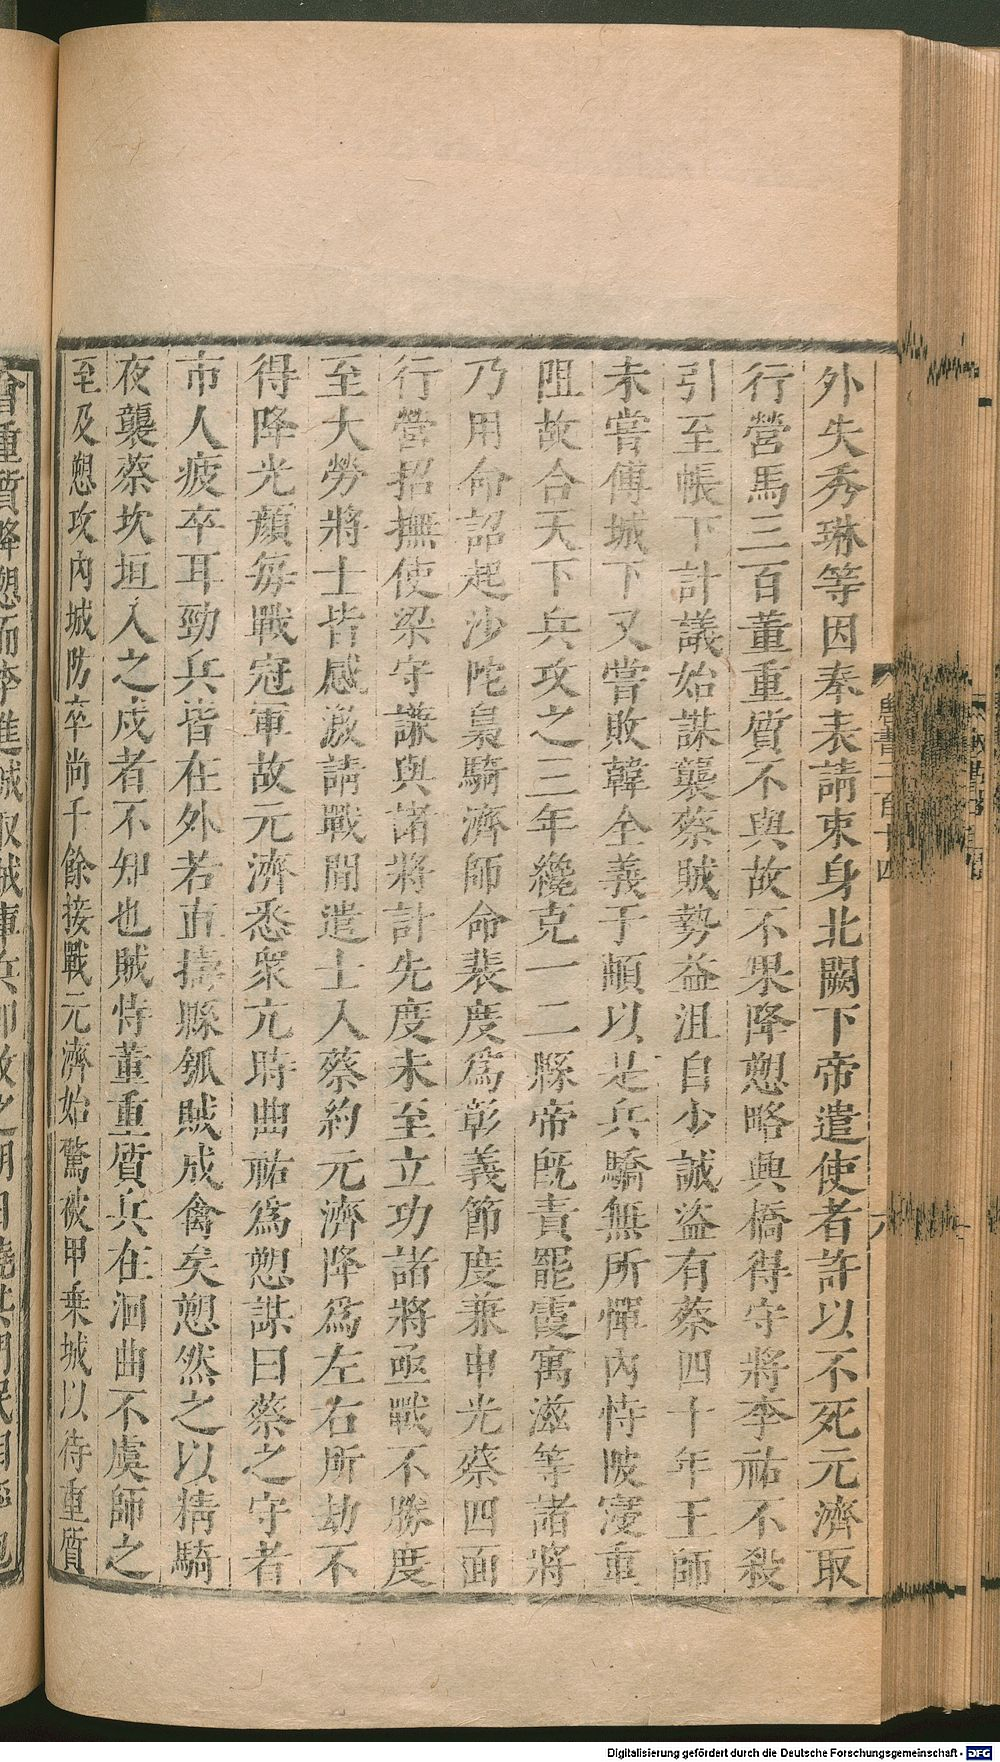 外失秀琳等因奉表請束身北闕下帝遣使者許以不死元濟取
行營馬三百董重質不與故不果降愬略興橋得守將李祐不殺
引至帳下計議始謀襲蔡賊勢益沮自少誠盜有蔡四十年王師
未嘗傅城下又嘗敗韓全義于頔以是兵驕無所憚內恃陂寖重
阻故合天下兵攻之三年纔克一二縣帝旣責罷霞寓滋等諸將
乃用命詔起沙陀梟騎濟師命裴度爲彰義節度兼申光蔡四面
行營招撫使梁守謙與諸將計先度未至立功諸將亟戰不勝度
至大勞將士皆感激請戰間遣士入蔡約元濟降爲左右所劫不
得降光顔每戰冠軍故元濟悉衆亢時曲祐爲愬謀曰蔡之守者
市人疲卒耳勁兵皆在外若直擣縣瓠賊成禽矣愬然之以精騎
夜襲蔡坎垣入之戍者不知也賊恃董重質兵在洄曲不虞師之
至及愬攻內城防卒尚千餘接戰元濟始驚被甲乗城以待重質
書二百十四
六
Digitalisierung gefördert durch die Deutsche Forschungsgemeinschaft - DFG